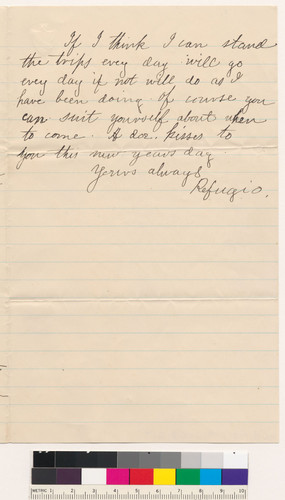 If I think I can stand
the trips every day will go
every day if not will do as I
have been doing Of course you
can suit yourself about when
to come. A doz. kisses to
you this new years day
Yours always
Refugio.
METRIC 1 2 3 4 5 6 7 8 9 10